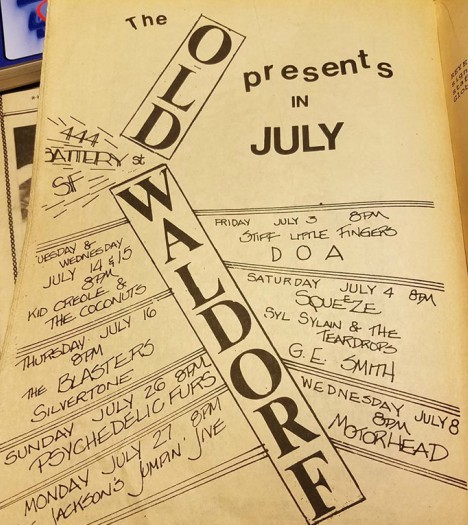 The
OLD
presents
IN
JULY
444
BATTERY st
SF
WALDORF
FRIDAY JULY 3 8PM
STIFF LITTLE FINGERS
D O A
SATURDAY JULY 4 8PM
SQUEEZE
SYL SYLAIN & THE
TEARDROPS
G.E. SMITH
WEDNESDAY JULY 8
8PM
MOTORHEAD
UESDAY &
WEDNESDAY
JULY 14 & 15
8PM
KID CREOLE &
THE COCONUTS
THURSDAY JULY 16
8PM
THE BLASTERS
SILVERTONE
SUNDAY JULY 26 8PM
PSYCHEDELIC FURS
MONDAY JULY 27 8PM
JACKSON'S JUMPIN' JIVE